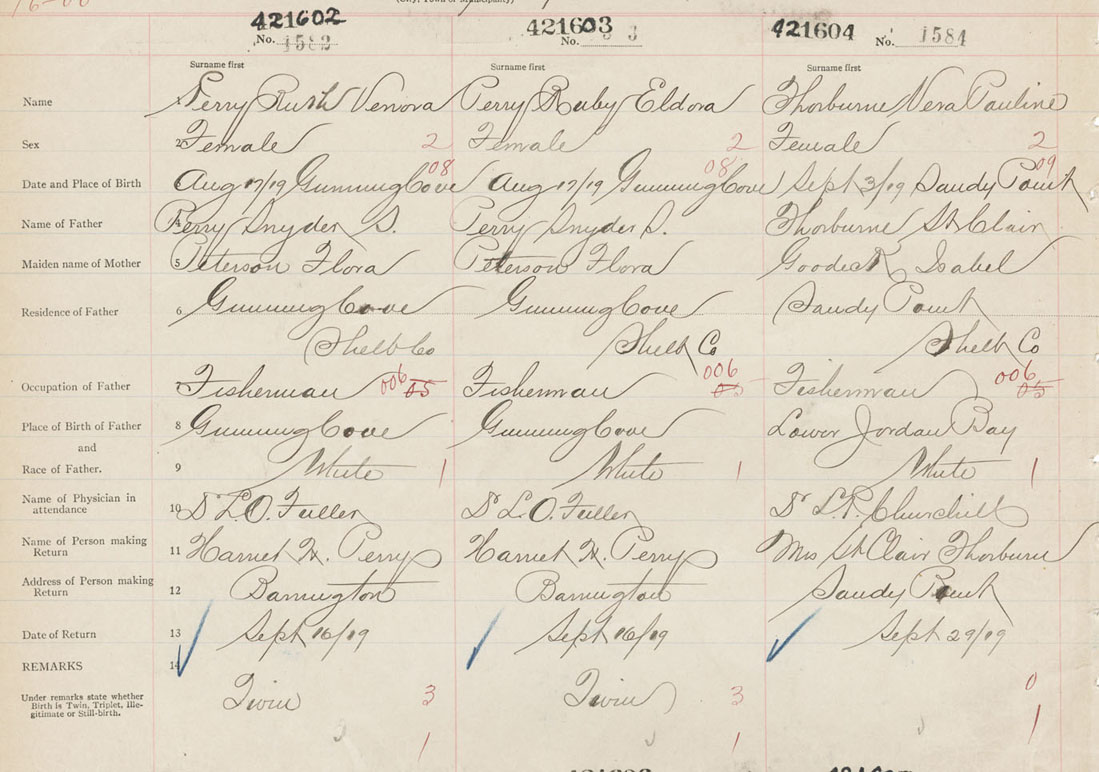 (City, Town or Municipality)
421602 421603 421604
No. 1582 No. 3 No. 1584
Surname first Surname first Surname first
Name Perry Ruth Venora Perry Ruby Eldora Thorburne Vera Pauline
Sex 2 Female 2 Female 2 Female 2
08 08 09
Date and Place of Birth Aug 17/19 Gunning Cove Aug 17/19 Gunning Cove Sept 3/19 Sandy Point
Name of Father 4 Perry Snyder S. Perry Snyder S. Thorburne St Clair
Maiden name of Mother 5 Peterson Flora Peterson Flora Goodick Isabel
Residence of Father 6 Gunning Cove Gunning Cove Sandy Point
Shelb Co Shelb Co Shelb Co
Occupation of Father 7 Fisherman 006 05 Fisherman 006 05 Fisherman 006 05
Place of Birth of Father 8 Gunning Cove Gunning Cove Lower Jordan Bay
and
Race of Father. 9 White 1 White 1 White 1
Name of Physician in
attendance 10 Dr L.O. Fuller Dr L.O. Fuller Dr L.P. Churchill
Name of Person making
Return 11 Harriet N. Perry Harriet N. Perry Mrs St Clair Thorburne
Address of Person making
Return 12 Barrington Barrington Sandy Point
Date of Return 13 Sept 16/19 Sept 16/19 Sept 29/19
REMARKS 14
Under remarks state whether
Birth is Twin, Triplet, Ille-
gitimate or Still-birth.
Twin 3 Twin 3 0
1 1 1